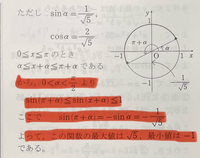 ただし sinα = 1/√5,
cosα = 2/√5
0≦x≦π のとき
α≦x+α≦π+α
である。
から, 0<α<π/2 より
sin(π+α)≦sin(x+α)≦1
ここで sin(π+α)=−sinα=−1/√5
よって, この関数の最大値は √5, 最小値は −1
である。
y
1
π+α
α
−1
O
1
x
−1
1/√5